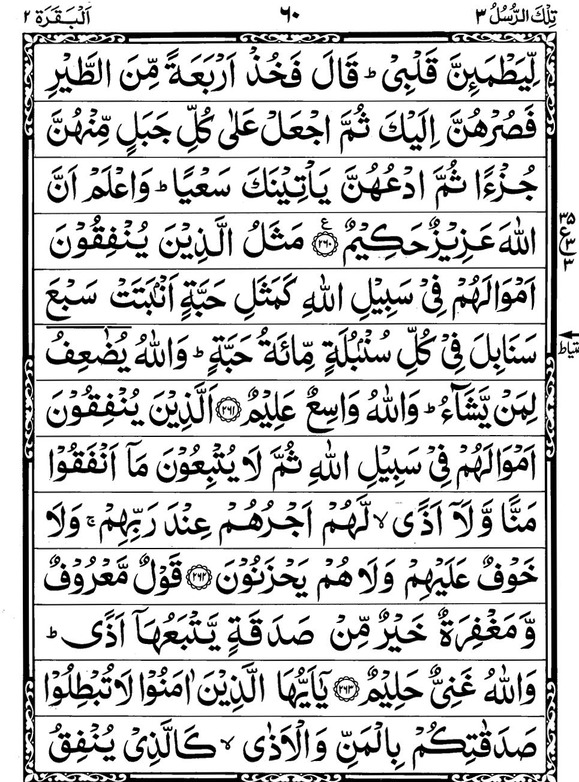 تِلْكَ الرُّسُلُ ٣ ٦٠ اَلْبَقَرَة ٢
لِّيَطْمَئِنَّ قَلْبِىْ ؕ قَالَ فَخُذْ اَرْبَعَةً مِّنَ الطَّيْرِ
فَصُرْهُنَّ اِلَيْكَ ثُمَّ اجْعَلْ عَلٰى كُلِّ جَبَلٍ مِّنْهُنَّ
جُزْءًا ثُمَّ ادْعُهُنَّ يَاْتِيْنَكَ سَعْيًا ؕ وَاعْلَمْ اَنَّ
اللّٰهَ عَزِيْزٌ حَكِيْمٌ ﴿٢٦٠﴾ ع مَثَلُ الَّذِيْنَ يُنْفِقُوْنَ
٣٥
ع ٣
٣
اَمْوَالَهُمْ فِىْ سَبِيْلِ اللّٰهِ كَمَثَلِ حَبَّةٍ اَنْۢبَتَتْ سَبْعَ
سَنَابِلَ فِىْ كُلِّ سُنْۢبُلَةٍ مِّائَةُ حَبَّةٍ ؕ وَاللّٰهُ يُضٰعِفُ
لِمَنْ يَّشَآءُ ؕ وَاللّٰهُ وَاسِعٌ عَلِيْمٌ ﴿٢٦١﴾ اَلَّذِيْنَ يُنْفِقُوْنَ
اَمْوَالَهُمْ فِىْ سَبِيْلِ اللّٰهِ ثُمَّ لَا يُتْبِعُوْنَ مَاۤ اَنْفَقُوْا
مَنًّا وَّلَاۤ اَذًى ۙ لَّهُمْ اَجْرُهُمْ عِنْدَ رَبِّهِمْ ۚ وَلَا
خَوْفٌ عَلَيْهِمْ وَلَا هُمْ يَحْزَنُوْنَ ﴿٢٦٢﴾ قَوْلٌ مَّعْرُوْفٌ
وَّمَغْفِرَةٌ خَيْرٌ مِّنْ صَدَقَةٍ يَّتْبَعُهَاۤ اَذًى ؕ
وَاللّٰهُ غَنِىٌّ حَلِيْمٌ ﴿٢٦٣﴾ يٰۤاَيُّهَا الَّذِيْنَ اٰمَنُوْا لَا تُبْطِلُوْا
صَدَقٰتِكُمْ بِالْمَنِّ وَالْاَذٰى ۙ كَالَّذِىْ يُنْفِقُ